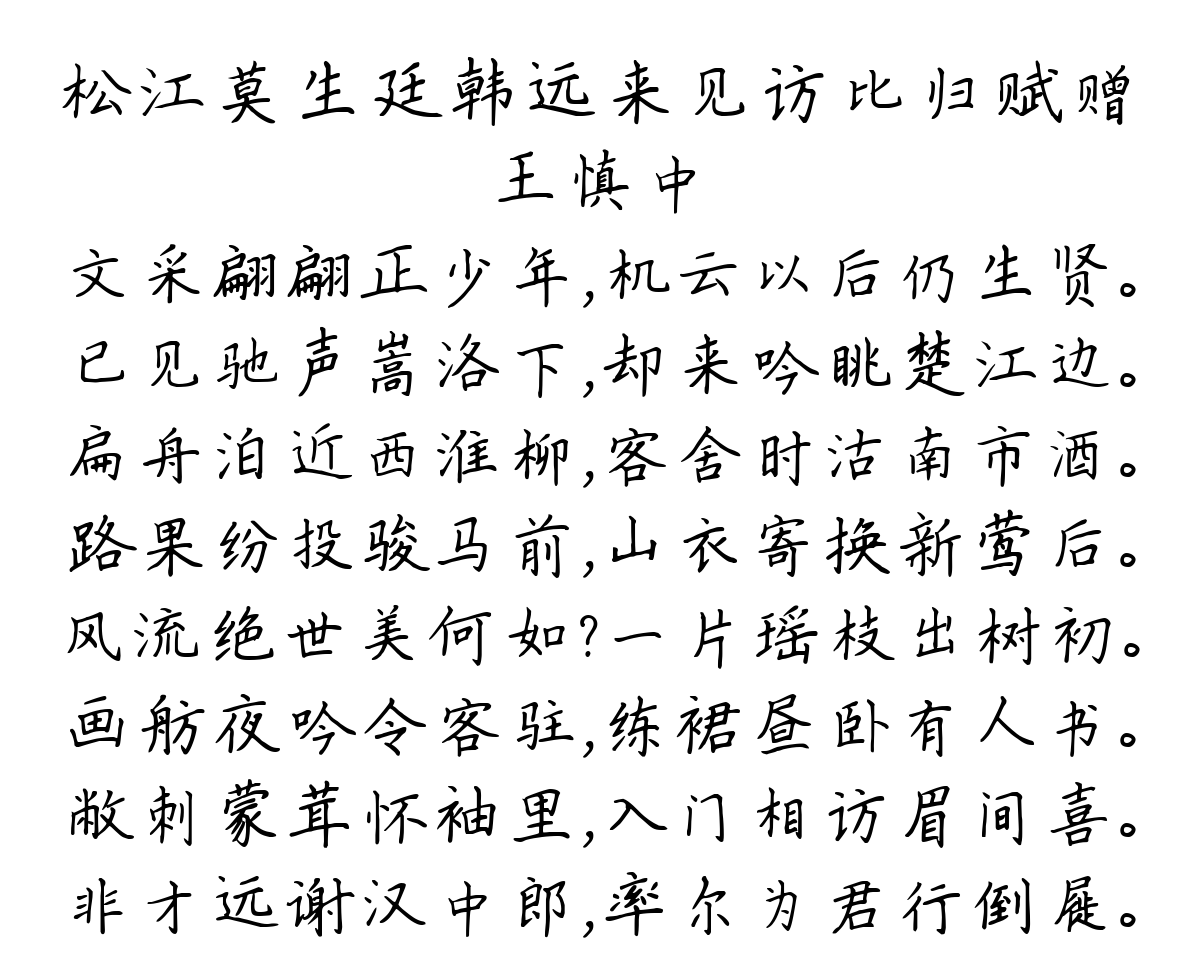 松江莫生廷韩远来见访比归赋赠
王慎中
文采翩翩正少年,机云以后仍生贤。
已见驰声嵩洛下,却来吟眺楚江边。
扁舟泊近西淮柳,客舍时沽南市酒。
路果纷投骏马前,山衣寄换新莺后。
风流绝世美何如?一片瑶枝出树初。
画舫夜吟令客驻,练裙昼卧有人书。
敝刺蒙茸怀袖里,入门相访眉间喜。
非才远谢汉中郎,率尔为君行倒屣。